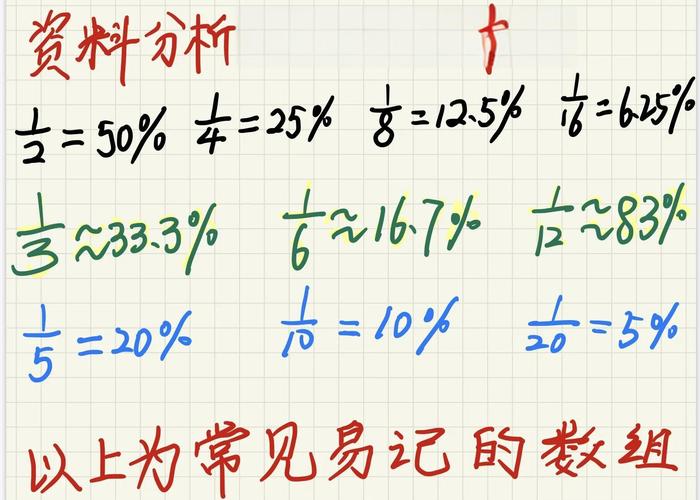 资料分析
1/2=50% 1/4=25% 1/8=12.5% 1/16=6.25%
1/3≈33.3% 1/6≈16.7% 1/12≈83%
1/5=20% 1/10=10% 1/20=5%
以上为常见易记的数组